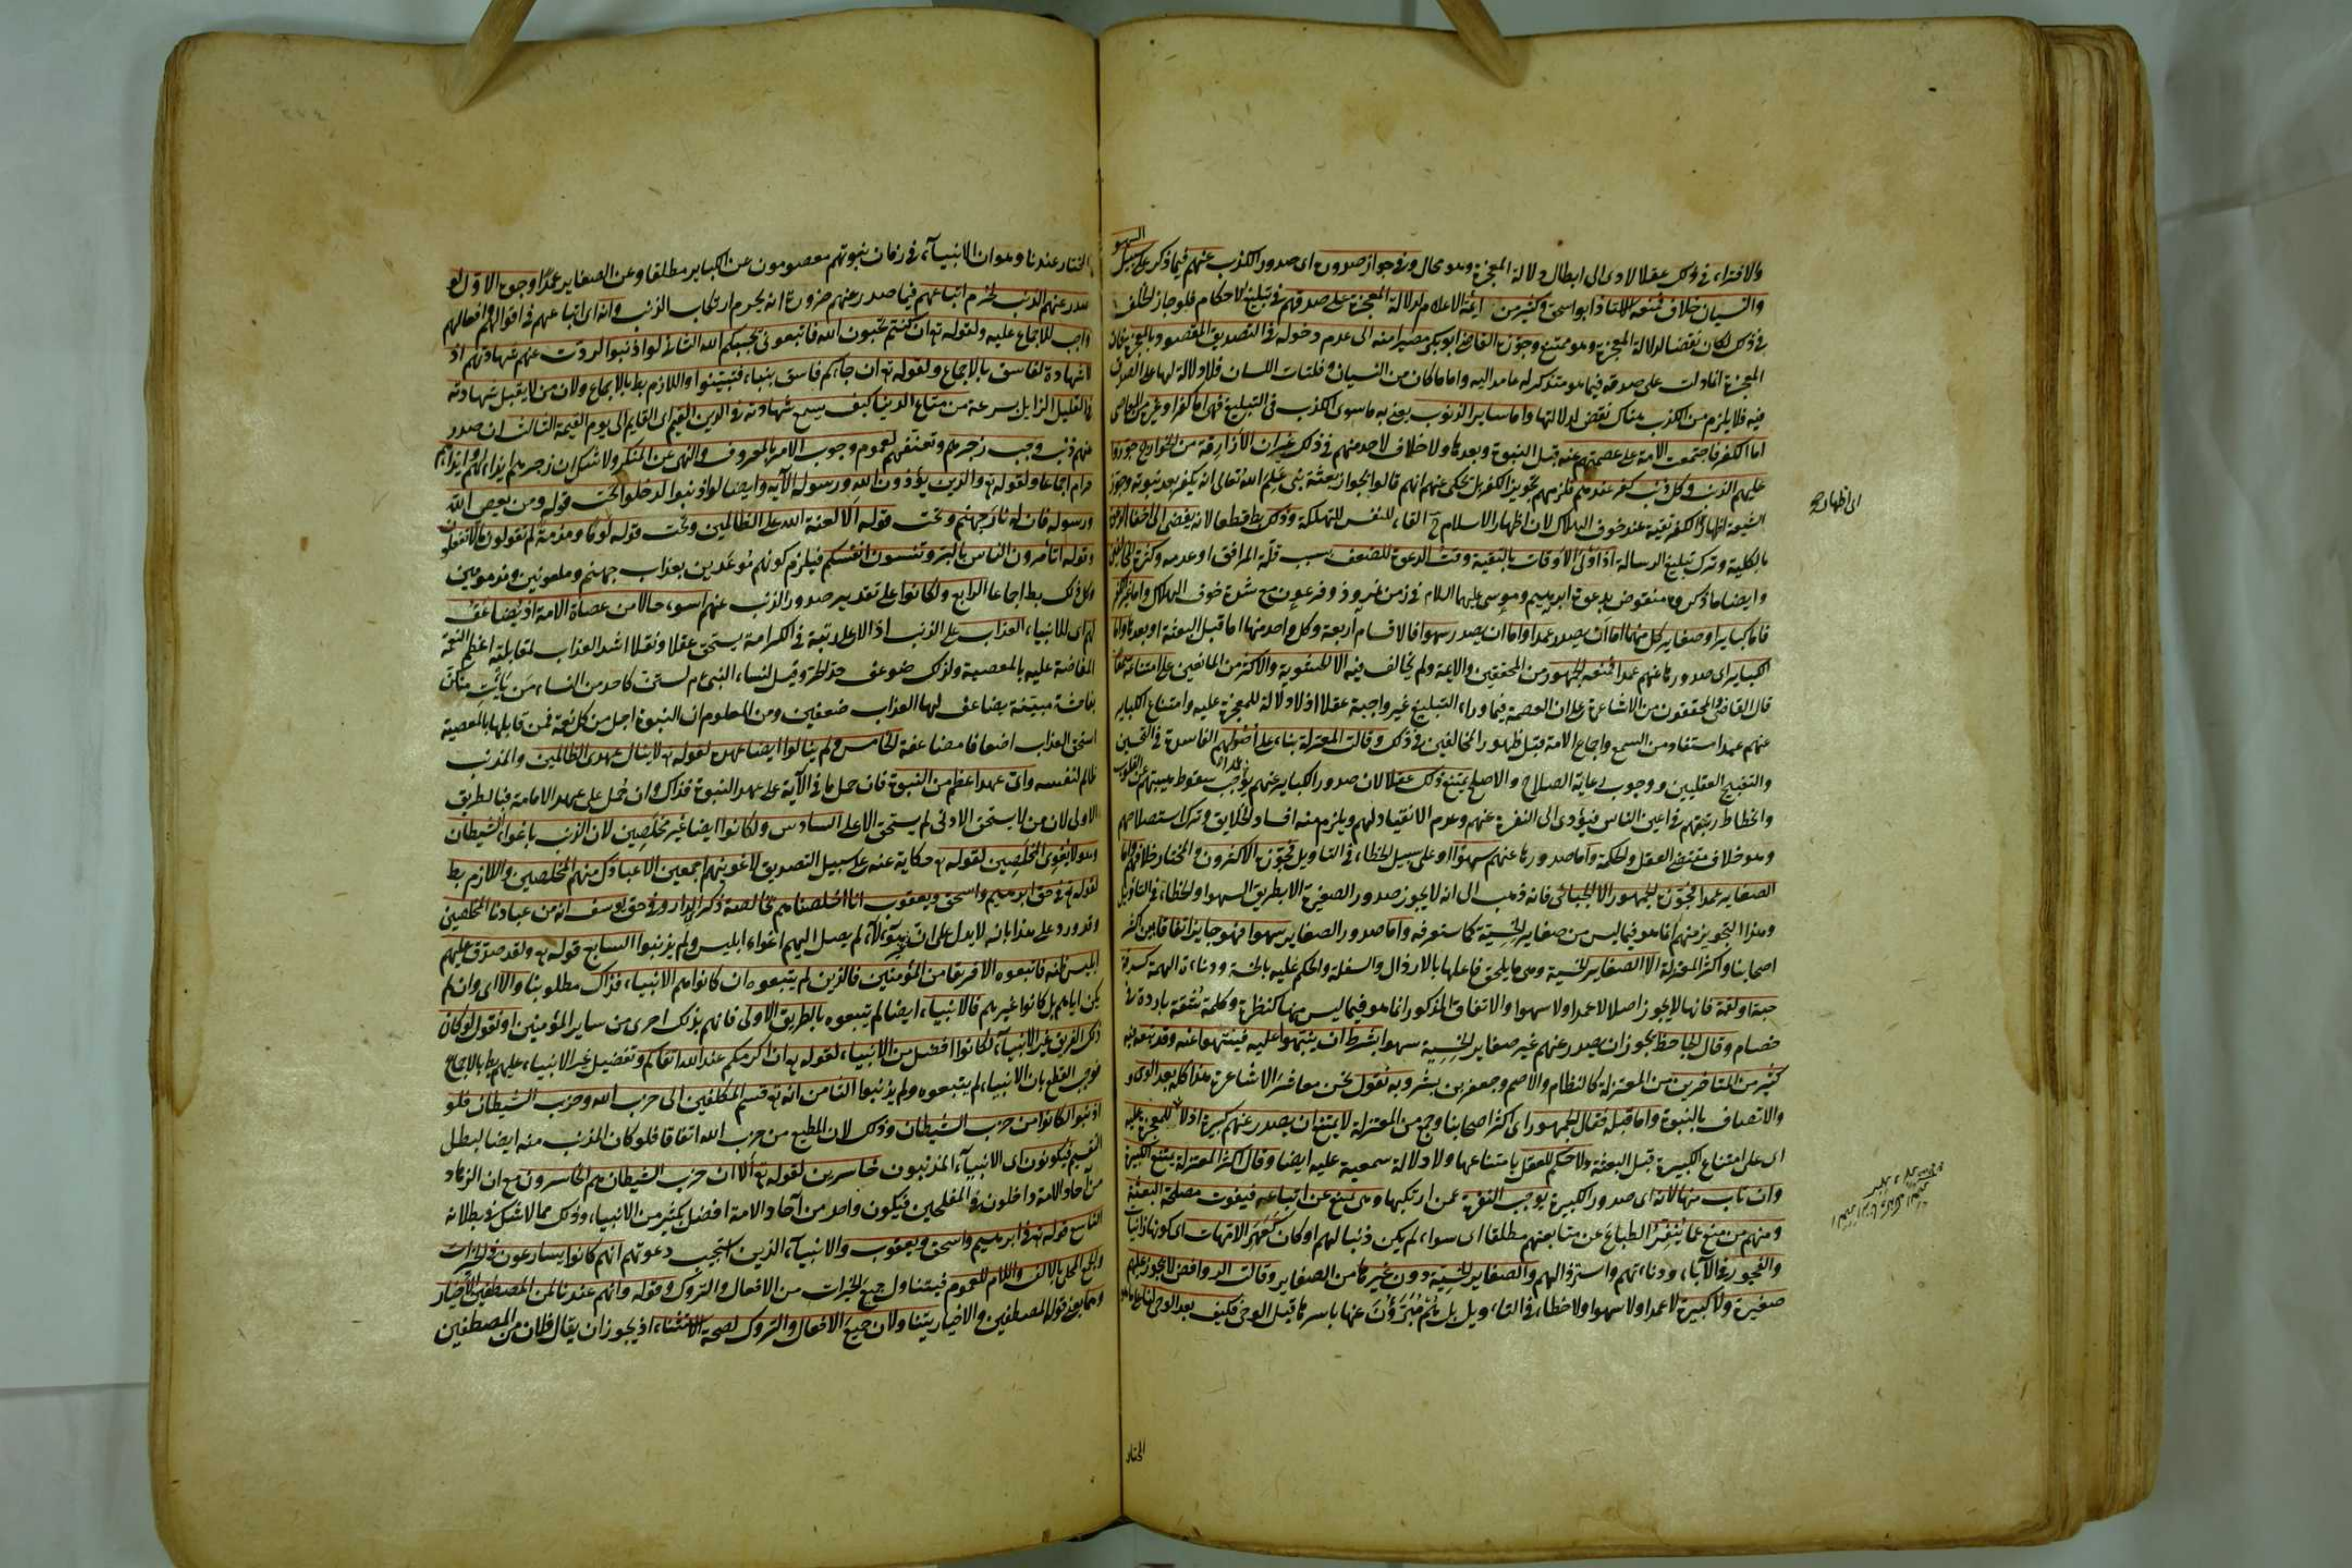 والافتراء في ذلك عقلا لادى الى ابطال دلالة المعجزة وهو محال وفي جواز صدوره اى صدور الكذب عنهم فيما ذكر على سبيل السهو
والنسيان خلاف فمنعه الاستاذ ابو اسحق وكثير من ائمة الاعلام لدلالة المعجزة على صدقهم في تبليغ الاحكام فلو جاز الخلف
في ذلك لكان نقضا لدلالة المعجزة وهو ممتنع وجوزه القاضى ابو بكر مصيرا منه الى عدم دخوله في التصديق المقصود بالمعجزة فان
المعجزة انما دلت على صدقه فيما هو متذكر له عامد اليه واما ما كان من النسيان وفلتات اللسان فلا دلالة لها على الصدق
فيه فلا يلزم من الكذب هناك نقض لدلالتها واما ساير الذنوب يعنى به ما سوى الكذب في التبليغ فهى اما كفر او غيره من المعاصى
اما الكفر فاجتمعت الامة على عصمتهم عنه قبل النبوة وبعدها ولا خلاف لاحد منهم في ذلك غير ان الازارقة من الخوارج جوزوا
عليهم الذنب وكل ذنب كفر عندهم فلزمهم تجويز الكفر بل يحكى عنهم انهم قالوا بجواز بعثة نبى علم الله تعالى انه يكفر بعد نبوته وجوز
الشيعة اظهار الكفر تقية عند خوف الهلاك لان اظهار الاسلام ح القاء للنفس في التهلكة وذلك بط قطعا لانه يفضى الى اخفاء الدعوة
بالكلية وترك تبليغ الرسالة اذ اولى الاوقات بالتقية وقت الدعوة للضعف بسبب قلة الموافق او عدمه وكثرة المخالفين
وايضا ما ذكروه منقوض بدعوة ابرهيم وموسى عليهما السلام في زمن نمرود وفرعون مع شدة خوف الهلاك واما غير الكفر
فاما كباير او صغاير كل منهما اما ان يصدر عمدا واما ان يصدر سهوا فالاقسام اربعة وكل واحد منها اما قبل البعثة او بعدها اما
الكباير اى صدورها عنهم عمدا فمنعه الجمهور من المحققين والايمة ولم يخالف فيه الا الحشوية والاكثر من المانعين على امتناعه سمعا
قال القاضى والمحققون من الاشاعرة ان العصمة فيما وراء التبليغ غير واجبة عقلا اذ لا دلالة للمعجزة عليه وامتناع الكباير
عنهم عمدا مستفاد من السمع واجماع الامة قبل ظهور المخالفين في ذلك وقالت المعتزلة بناء على اصولهم الفاسدة في التحسين
والتقبيح العقليين ووجوب رعاية الصلاح والاصلح يمتنع ذلك عقلا لان صدور الكباير عنهم عمدا يوجب سقوط هيبتهم عن القلوب
وانحطاط رتبتهم في اعين الناس فيؤدى الى النفرة عنهم وعدم الانقياد لهم ويلزم منه افساد الخلايق وترك استصلاحهم
وهو خلاف مقتضى العقل والحكمة واما صدورها عنهم سهوا او على سبيل الخطاء في التاويل فجوزه الاكثرون والمختار خلافه واما
الصغاير عمدا فجوزه الجمهور الا الجبائى فانه ذهب الى انه لا يجوز صدور الصغيرة الا بطريق السهو او الخطاء في التاويل
وهذا التجويز منهم انما هو فيما ليس من صغاير الخسية كما ستعرفه واما صدور الصغاير سهوا فهو جايز اتفاقا بين اكثر
اصحابنا واكثر المعتزلة الا الصغاير الخسية وهى ما يلحق فاعلها بالارذال والسفلة والحكم عليه بالخسة ودناءة الهمة كسرقة
حبة او لقمة فانها لا يجوز اصلا لا عمدا ولا سهوا والاتفاق المذكور انما هو فيما ليس منها كنظرة وكلمة سفه باردة في
خصام وقال الجاحظ يجوز ان يصدر عنهم غير صغاير الخسية سهوا بشرط ان ينبهوا عليه فينتهوا عنه وقد تبعه فيه
كثير من المتاخرين من المعتزلة كالنظام والاصم وجعفر بن بشر وبه نقول نحن معاشر الاشاعرة هذا كله بعد الوحى
والاتصاف بالنبوة واما قبله فقال الجمهور اى اكثر اصحابنا وجمع من المعتزلة لا يمتنع ان يصدر عنهم كبيرة اذ لا للمعجزة عليه
اى على امتناع الكبيرة قبل البعثة ولا حكم للعقل بامتناعها ولا دلالة سمعية عليه ايضا وقال اكثر المعتزلة يمتنع الكبيرة
وان تاب منها لانه اى صدور الكبيرة يوجب النفرة عمن ارتكبها وهى تمنع عن اتباعه فيفوت مصلحة البعثة
ومنهم من منع عما ينفر الطباع عن متابعتهم مطلقا اى سواء لم يكن ذنبا لهم او كان كعهر الامهات اى كونها زانيات
والفجور في الآباء ودناءتهم واسترذالهم والصغاير الخسية دون غيرها من الصغاير وقالت الروافض لا يجوز عليهم
صغيرة ولا كبيرة لا عمدا ولا سهوا ولا خطاء في التاويل بل هم مبرؤن عنها باسرها قبل الوحى فكيف بعد الوحى
اى اظهاره
المختار
المختار عندنا وهو ان الانبيآء في زمان نبوتهم معصومون عن الكباير مطلقا وعن الصغاير عمدا وجوه الاول لو
صدر عنهم الذنب لحرم اتباعهم فيما صدر عنهم ضرورة انه يحرم ارتكاب الذنب وانه اى اتباعهم في اقوالهم وافعالهم
واجب للاجماع عليه ولقوله تع ان كنتم تحبون الله فاتبعونى يحببكم الله الثانى لو اذنبوا لردت عنهم شهادتهم اذ
لا شهادة لفاسق بالاجماع ولقوله تع ان جاءكم فاسق بنباء فتبينوا واللازم بط بالاجماع ولان من لا يقبل شهادته
في القليل الزايل بسرعة من متاع الدنيا كيف يسمع شهادته في الدين القيم اى القايم الى يوم القيمة الثالث ان صدر
منهم ذنب وجب زجرهم وتعنيفهم لعموم وجوب الامر بالمعروف والنهى عن المنكر ولا شك ان زجرهم ايذاء لهم وايذاؤهم
حرام اجماعا ولقوله تع والذين يؤذون الله ورسوله الآية وايضا لو اذنبوا لدخلوا تحت قوله ومن يعص الله
ورسوله فان له نار جهنم وتحت قوله الا لعنة الله على الظالمين وتحت قوله لوما ومذمة لم تقولون ما لا تفعلون
وقوله اتأمرون الناس بالبر وتنسون انفسكم فيلزم كونهم موعدين بعذاب جهنم وملعونين ومذمومين
وكل ذلك بط اجماعا الرابع ولكانوا على تقدير صدور الذنب عنهم اسوء حالا من عصاة الامة اذ يضاعف
لهم اى للانبياء العذاب على الذنب اذ الاعلى رتبة في الكرامة يستحق عقلا ونقلا اشد العذاب لمقابلته اعظم النعمة
المفاضة عليه بالمعصية ولذلك ضوعف حد الحر وقيل لنساء النبى ع م لستن كاحد من النساء من يأت منكن
بفاحشة مبينة يضاعف لها العذاب ضعفين ومن المعلوم ان النبوة اجل من كل نعمة فمن قابلها بالمعصية
استحق العذاب اضعافا مضاعفة الخامس ولم ينالوا ايضا عهده لقوله تع لا ينال عهدى الظالمين والمذنب
ظالم لنفسه واى عهد اعظم من النبوة فان حمل ما في الآية على عهد النبوة فذاك وان حمل على عهد الامامة فبالطريق
الاولى لان من لا يستحق الادنى لم يستحق الاعلى السادس ولكانوا ايضا غير مخلصين لان الذنب باغواء الشيطان
وهو لا يغوى المخلصين لقوله تع حكاية عنه على سبيل التصديق لاغوينهم اجمعين الا عبادك منهم المخلصين واللازم بط
لقوله تع في حق ابرهيم واسحق ويعقوب انا اخلصناهم بخالصة ذكرى الدار وفي حق يوسف انه من عبادنا المخلصين
وقد ورد على هذا بانه لا يدل على ان لم يصل اليهم اغواء ابليس ولم يذنبوا السابع قوله تع ولقد صدق عليهم
ابليس ظنه فاتبعوه الا فريقا من المؤمنين فالذين لم يتبعوه ان كانوا هم الانبياء فذاك مطلوبنا والا اى وان لم
يكن اياهم بل كانوا غيرهم فالانبياء ايضا لم يتبعوه بالطريق الاولى فانهم بذلك احرى من ساير المؤمنين او نقول لو كان
ذلك الفريق غير الانبيآء لكانوا افضل من الانبياء لقوله تع ان اكرمكم عند الله اتقاكم وتفضيل غير الانبياء عليهم بط بالاجماع
فوجب القطع بان الانبياء لم يتبعوه ولم يذنبوا الثامن انه تع قسم المكلفين الى حزب الله وحزب الشيطان فلو
اذنبوا لكانوا من حزب الشيطان وذلك لان المطيع من حزب الله اتفاقا فلو كان المذنب منه ايضا لبطل
التقسيم فيكونون اى الانبيآء المذنبون خاسرين لقوله تع الا ان حزب الشيطان هم الخاسرون مع ان الزهاد
من آحاد الامة داخلون في المفلحين فيكون واحد من آحاد الامة افضل بكثير من الانبياء وذلك مما لا شك في بطلانه
التاسع قوله تع في ابرهيم واسحق ويعقوب والانبيآء الذين استجيب دعوتهم انهم كانوا يسارعون في الخيرات
والجمع المحلى بالالف واللام للعموم فيتناول جميع الخيرات من الافعال والتروك وقوله وانهم عندنا لمن المصطفين الاخيار
وهما يعنى قوله المصطفين والاخيار يتناولان جميع الافعال والتروك لصحة الاستثناء اذ يجوز ان يقال فلان من المصطفين